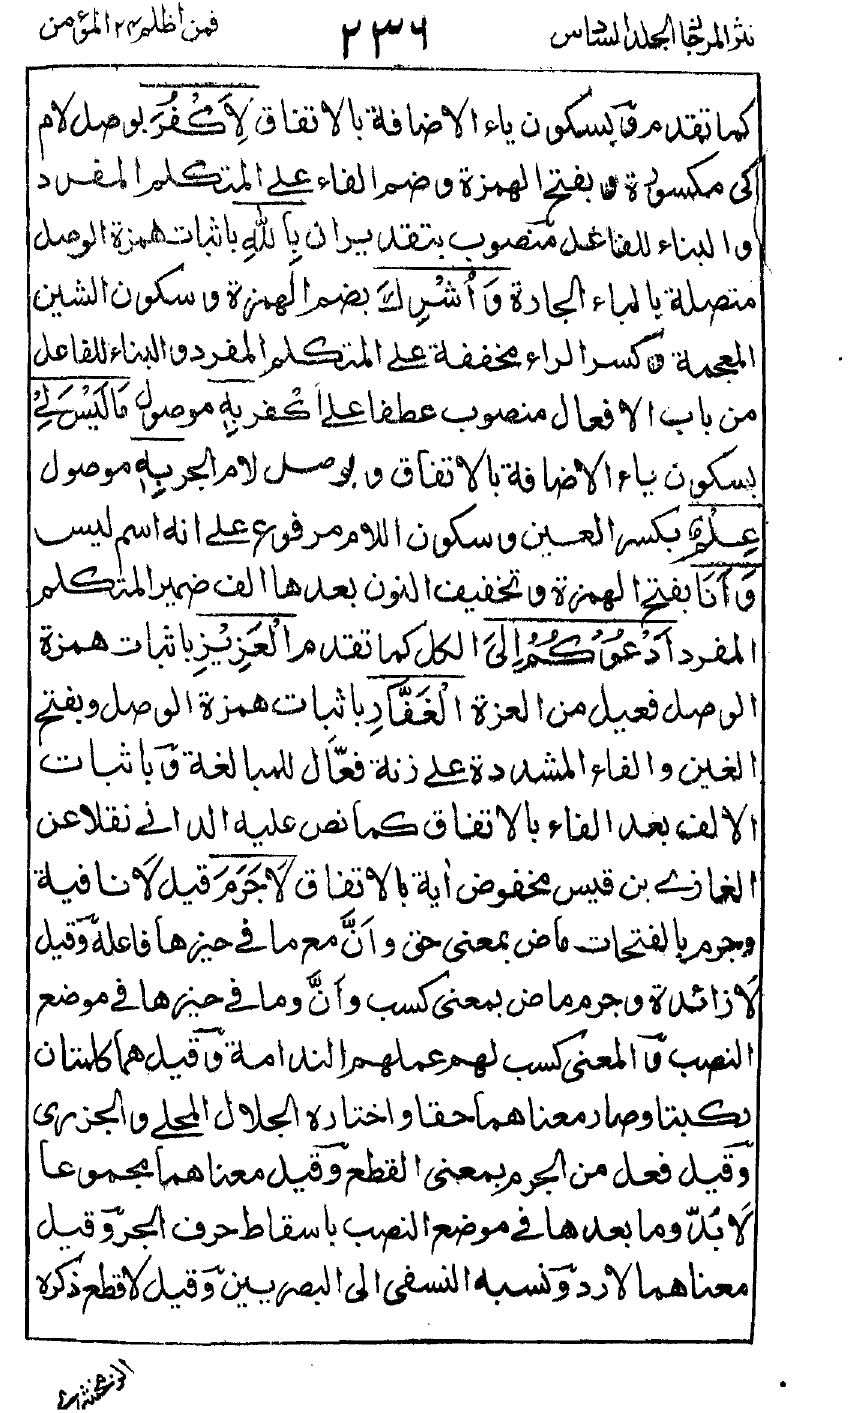 نثر المرجان الجلد السادس ٢٣٦ فمن اظلم ٢٤ المؤمن
كما تقدم وَبسكون ياء الاضافة بالاتفاق لِاَكْفُرَ بوصل لام
كى مكسورة وبفتح الهمزة وضم الفاء على المتكلم المفرد
والبناء للفاعل منصوب بتقدير ان بِاللّٰهِ باثبات همزة الوصل
متصلة بالباء الجارة وَاُشْرِكَ بضم الهمزة وسكون الشين
المعجمة وكسر الراء مخففة على المتكلم المفرد والبناء للفاعل
من باب الافعال منصوب عطفا على اكفر بِهٖ موصول مَا لَيْسَ لِيْ
بسكون ياء الاضافة بالاتفاق وبوصل لام الجر بِهٖ موصول
عِلْمٌ بكسر العين وسكون اللام مرفوع على انه اسم ليس
وَاَنَا بفتح الهمزة وتخفيف النون بعدها الف ضمير المتكلم
المفرد اَدْعُوْكُمْ اِلَى الكل كما تقدم الْعَزِيْزِ باثبات همزة
الوصل فعيل من العزة الْغَفَّارِ باثبات همزة الوصل وبفتح
الغين والفاء المشددة على زنة فعّال للمبالغة وَباثبات
الالف بعد الفاء بالاتفاق كما نص عليه الدانى نقلا عن
الغازى بن قيس مخفوض اٰية بالاتفاق لَاجَرَمَ قيل لَا نافية
وجرم بالفتحات ماض بمعنى حق واَنَّ مع ما فى حيزها فاعله وَقيل
لَا زائدة وجرم ماض بمعنى كسب واَنَّ وما فى حيزها فى موضع
النصب وَالمعنى كسب لهم عملهم الندامة وَقيل هما كلمتان
ركبتا وصار معناهما حقا واختاره الجلال المحلى والجزرى
وَقيل فعل من الجرم بمعنى القطع وَقيل معناهما مجموعا
لَا بُدّ وما بعدها فى موضع النصب باسقاط حرف الجر وَقيل
معناهما لا رد وَنسبه النسفى الى البصريين وَقيل لا قطع ذكره
الزمخشرى